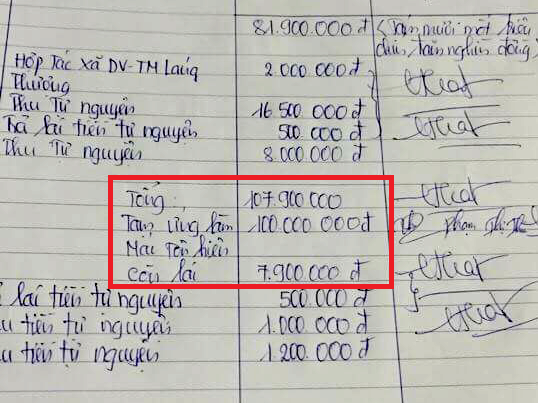 81.900.000đ (Tám mươi mốt triệu
chín trăm nghìn đồng)
Hợp Tác Xã DV-TM 2.000.000đ
Thương
Thu Tự nguyện 16.500.000đ
Trả lại tiền tự nguyện 500.000đ
Thu Tự nguyện 8.000.000đ
Tổng: 107.900.000
Tạm ứng làm 100.000.000đ
Còn lại 7.900.000đ
lại tiền tự nguyện 500.000đ
tiền tự nguyện 1.000.000đ
tiền tự nguyện 1.200.000đ